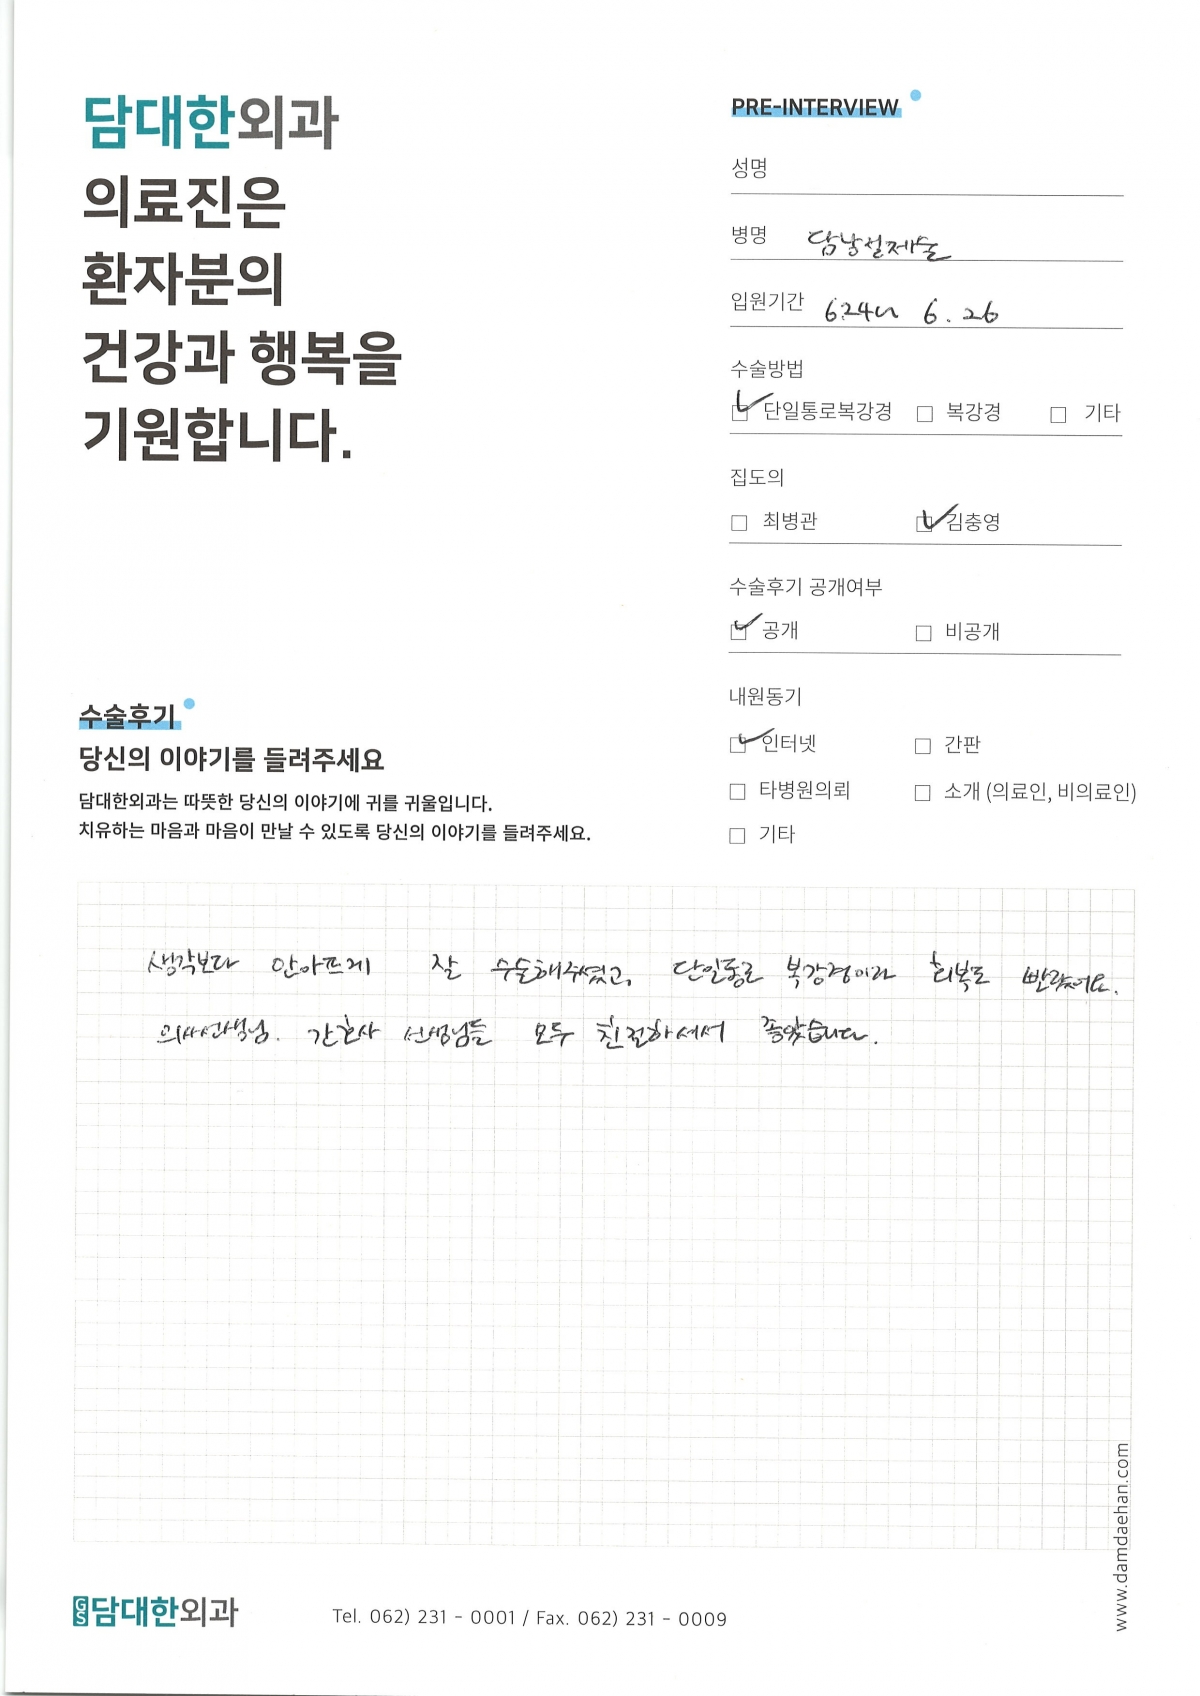 담대한외과
의료진은
환자분의
건강과 행복을
기원합니다.
PRE-INTERVIEW
성명
병명 담낭절제술
입원기간 6.24~ 6. 26
수술방법
단일통로복강경 복강경 기타
집도의
최병관 김충영
수술후기 공개여부
공개 비공개
내원동기
인터넷 간판
타병원의뢰 소개 (의료인, 비의료인)
기타
수술후기
당신의 이야기를 들려주세요
담대한외과는 따뜻한 당신의 이야기에 귀를 귀울입니다.
치유하는 마음과 마음이 만날 수 있도록 당신의 이야기를 들려주세요.
생각보다 안아프게 잘 수술해주셨고, 단일통로 복강경이라 회복도 빨랐어요.
의사선생님. 간호사 선생님들 모두 친절하셔서 좋았습니다.
www.damdaehan.com
GS 담대한외과
Tel. 062) 231 - 0001 / Fax. 062) 231 - 0009